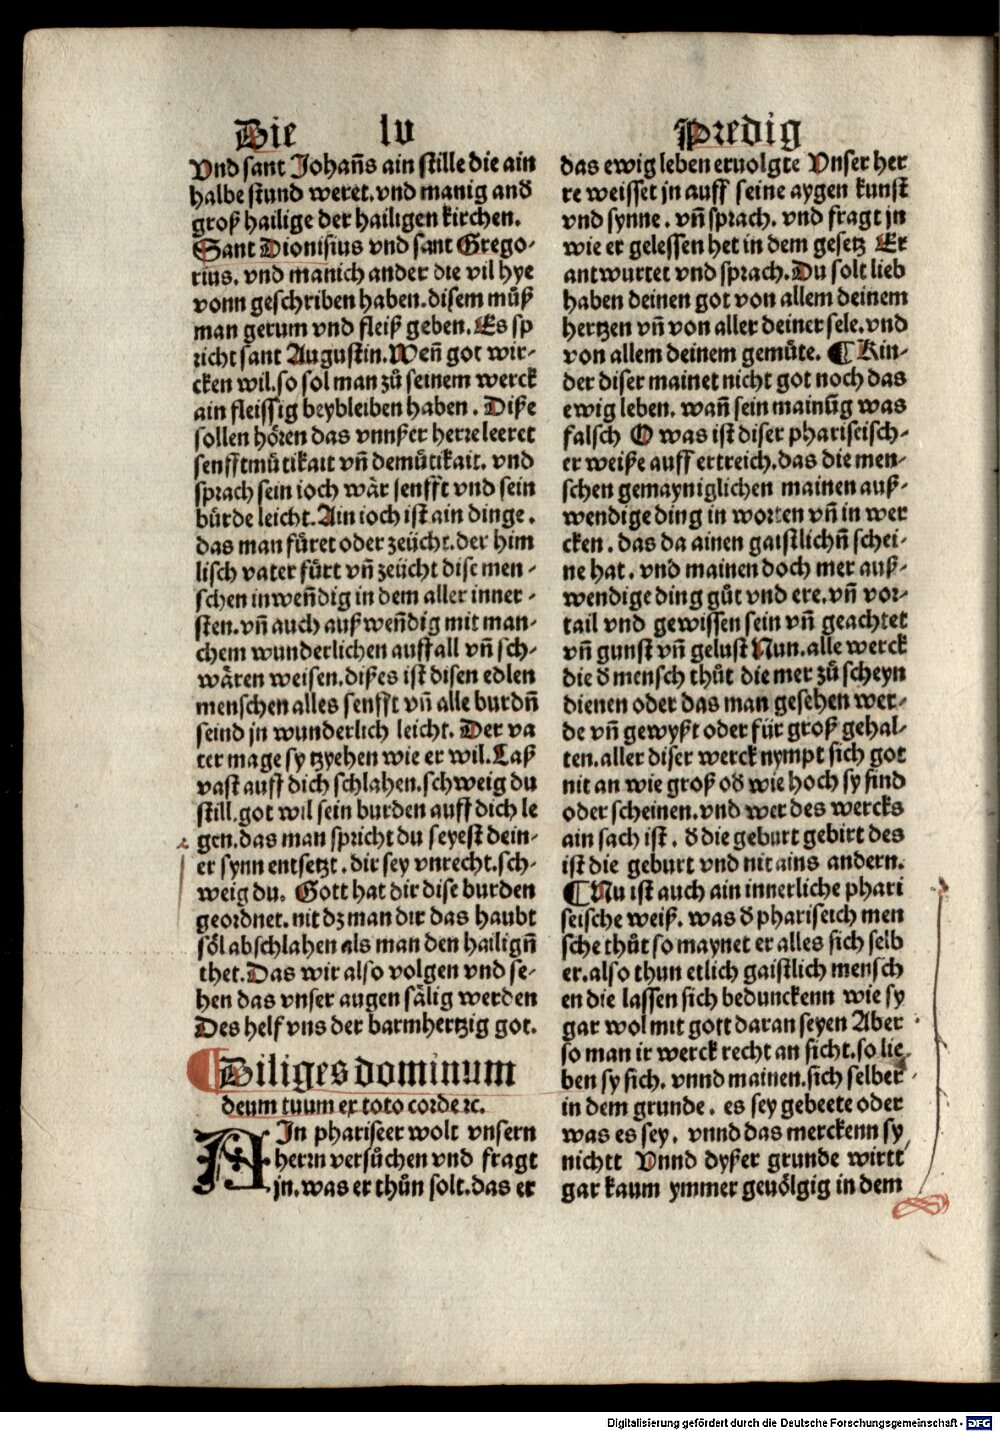 Die lv Predig
Vnd sant Johañs ain stille die ain
halbe stund weret. vnd manig and
groß hailige der hailigen kirchen.
Sant Dionisius vnd sant Grego-
rius. vnd manich ander die vil hye
vonn geschriben haben. disem muͤß
man gerum vnd fleiß geben. Es sp
richt sant Augustin. Weñ got wir-
cken wil. so sol man zuͦ seinem werck
ain fleissig beybleiben haben. Diße
sollen hoͤren das vnnßer herre leeret
senfftmuͤtikait vñ demuͤtikait. vnd
sprach sein ioch waͤr senfft vnd sein
buͤrde leicht. Ain ioch ist ain dinge.
das man fuͤret oder zeuͤcht. der him
lisch vater fuͤrt vñ zeuͤcht dise men-
schen inweñdig in dem aller inner-
sten. vñ auch außweñdig mit man-
chem wunderlichen auffall vñ sch-
waͤren weisen. dißes ist disen edlen
menschen alles senfft vñ alle burdñ
seind jn wunderlich leicht. Der va
ter mage sy tzyehen wie er wil. Laß
vast auff dich schlahen. schweig du
still. got wil sein burden auff dich le
gen. das man spricht du seyest dein-
er synn entsetzt. dir sey vnrecht. sch-
weig du. Gott hat dir dise burden
geordnet. nit dz man dir das haubt
soͤl abschlahen als man den hailigñ
thet. Das wir also volgen vnd se-
hen das vnser augen saͤlig werden
Des helf vns der barmhertzig got.
Diliges dominum
deum tuum ex toto corde ꝛc.
AIn phariseer wolt vnsern
herrn versuͦchen vnd fragt
jn. was er thuͦn solt. das er
das ewig leben eruolgte Vnser her
re weisset jn auff seine aygen kunst
vnd synne. vñ sprach. vnd fragt jn
wie er gelessen het in dem gesetz Er
antwurtet vnd sprach. Du solt lieb
haben deinen got von allem deinem
hertzen vñ von aller deiner sele. vnd
von allem deinem gemuͤte. ¶ Kin-
der diser mainet nicht got noch das
ewig leben. wañ sein mainũg was
falsch O was ist diser phariseisch-
er weiße auff ertreich. das die men-
schen gemayniglichen mainen auß-
wendige ding in worten vñ in wer
cken. das da ainen gaistlichñ schei-
ne hat. vnd mainen doch mer auß-
wendige ding guͦt vnd ere. vñ vor-
tail vnd gewissen sein vñ geachtet
vñ gunst vñ gelust Nun. alle werck
die d mensch thuͦt die mer zuͦ scheyn
dienen oder das man gesehen wer-
de vñ gewyßt oder fuͤr groß gehal-
ten. aller diser werck nympt sich got
nit an wie groß od wie hoch sy sind
oder scheinen. vnd wer des wercks
ain sach ist. d die geburt gebirt des
ist die geburt vnd nit ains andern.
¶ Nu ist auch ain innerliche phari
seische weiß. was d phariseich men
sche thuͦt so maynet er alles sich selb
er. also thun etlich gaistlich mensch
en die lassen sich bedunckenn wie sy
gar wol mit gott daran seyen Aber
so man ir werck recht an sicht. so lie
ben sy sich. vnnd mainen. sich selber
in dem grunde. es sey gebeete oder
was es sey. vnnd das merckenn sy
nichtt Vnnd dyßer grunde wirtt
gar kaum ymmer geuoͤlgig in dem
Digitalisierung gefördert durch die Deutsche Forschungsgemeinschaft - DFG